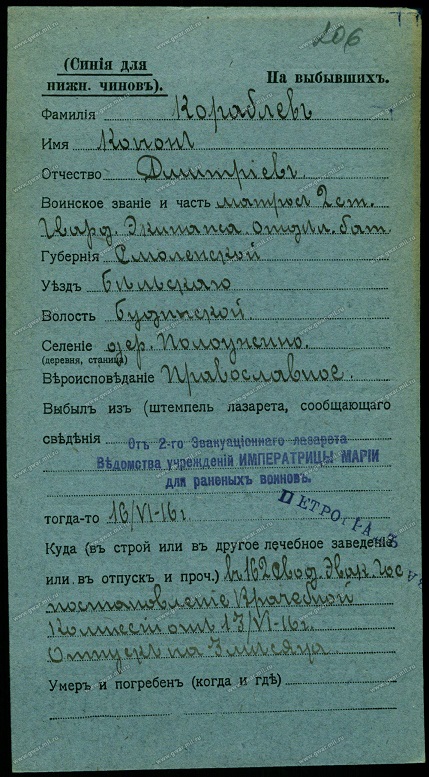 206
(Синія для
нижн. чиновъ).
На выбывшихъ.
Фамилія Кораблевъ
Имя Кононъ
Отчество Дмитріевъ
Воинское званіе и часть матросъ 2 ст.
Гвард. Экипажа отдѣл. бат.
Губернія Смоленской
Уѣздъ Бѣльскаго
Волость Будинской
Селеніе дер. Полоунино.
(деревня, станица)
Вѣроисповѣданіе Православное.
Выбылъ изъ (штемпель лазарета, сообщающаго
свѣдѣнія
Отъ 2-го Эвакуаціоннаго лазарета
Вѣдомства учрежденій ИМПЕРАТРИЦЫ МАРІИ
для раненыхъ воиновъ.
ПЕТРОГРАДЪ
тогда-то 16/VI-16 г.
Куда (въ строй или въ другое лечебное заведеніе
или въ отпускъ и проч.) въ 162 Свод. Эвак. Гос
постановленіе Врачебной
Коммисіи отъ 13/VI-16 г.
Отпускъ на 3 мѣсяца
Умеръ и погребенъ (когда и гдѣ)
www.gwar.mil.ru